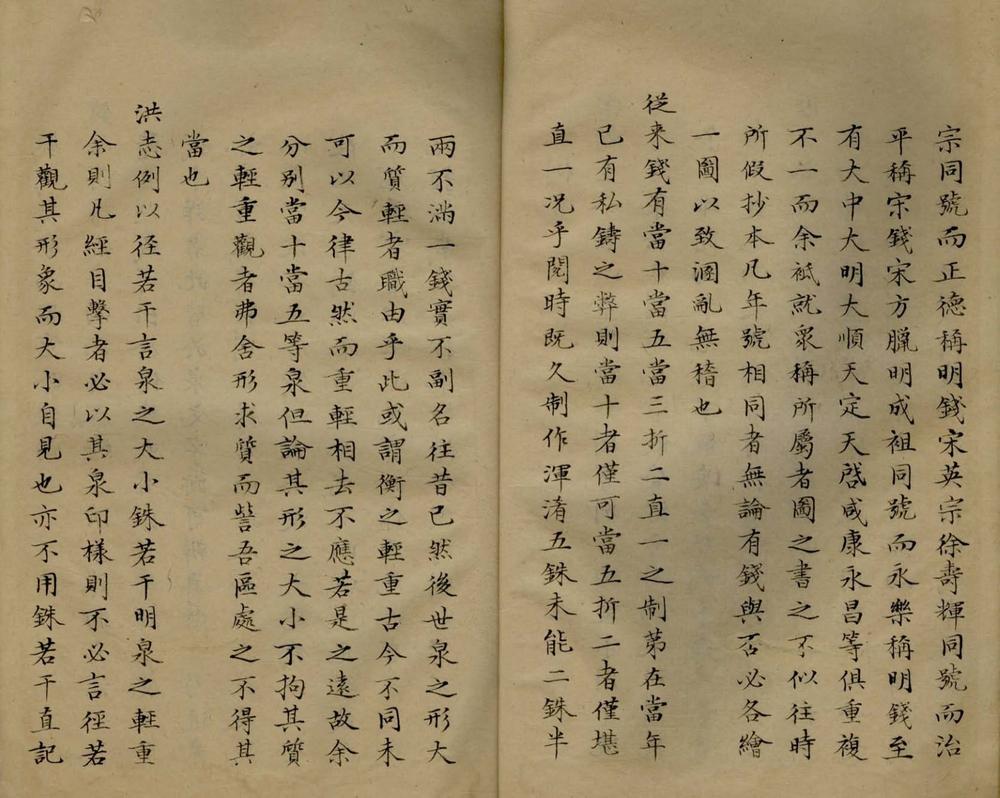 宗同號而正德稱明錢宋英宗徐壽輝同號而治
平稱宋錢宋方臘明成祖同號而永樂稱明錢至
有大中大明大順天定天啓咸康永昌等俱重複
不一而余祗就衆稱所屬者圖之書之不似往時
所假抄本凡年號相同者無論有錢與否必各繪
一圖以致溷亂無稽也
從来錢有當十當五當三折二直一之制苐在當年
已有私鋳之弊則當十者僅可當五折二者僅堪
直一况乎閱時既久制作渾淆五銖未能二銖半
兩不滿一錢實不副名往昔已然後世泉之形大
而質輕者職由乎此或謂衡之輕重古今不同未
可以今律古然而重輕相去不應若是之遠故余
分別當十當五等泉但論其形之大小不拘其質
之輕重觀者弗舍形求質而訾吾區處之不得其
當也
洪志例以径若干言泉之大小銖若干明泉之輕重
余則凡經目擊者必以其泉印樣則不必言徑若
干觀其形象而大小自見也亦不用銖若干直記